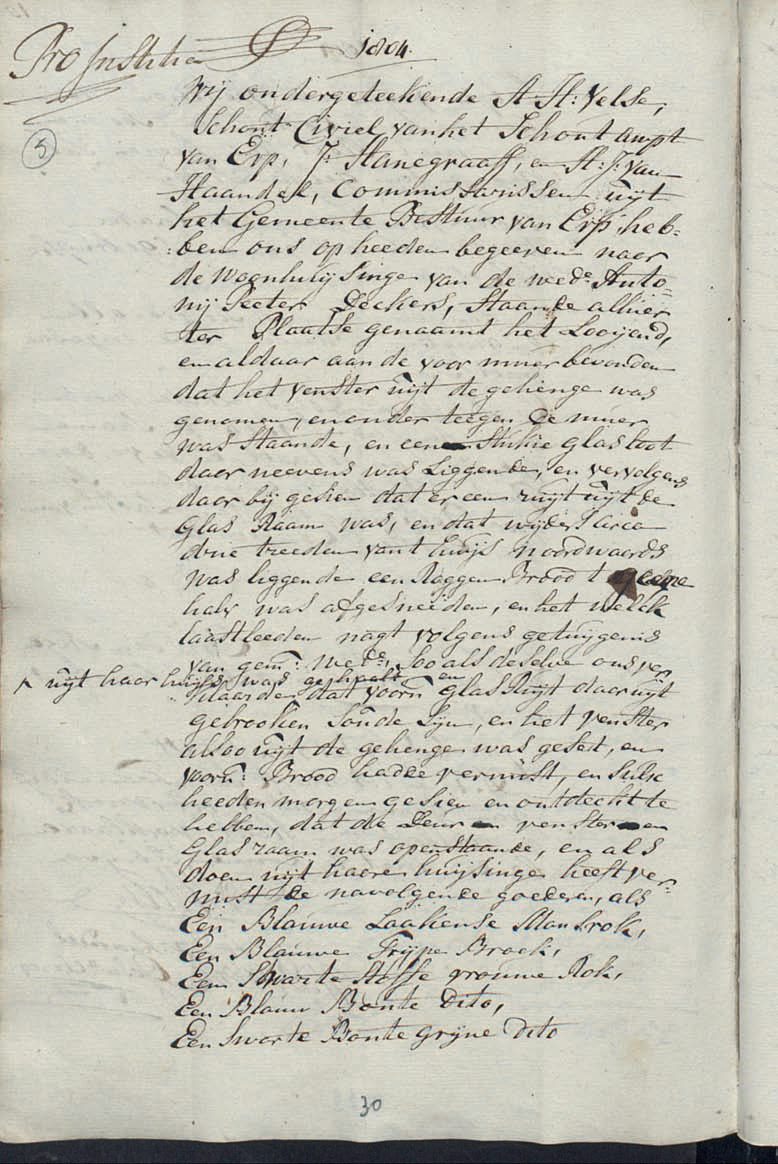 Pro Justitia 1804.
5
Wij ondergeteekende A: H: Velse,
Schout Civiel van het Schout ampt
van Erp, J: Hanegraaff, en H: J: van
Haandel, Commissarissen uijt
het Gemeente Bestuur van Erp, heb=
=ben ons op heeden begeeven naar
de woonhuijsinge van de wede. Anto=
nij Peeter Deckers, staande alhier
ter Plaatse genaamt het Looijend,
en aldaar aan de voor muur bevonden
dat het venster uijt de gehenge was
genomen, en onder teegen de muur
was staande, en een stukie glas loot
daar neevens was liggende, en vervolgens
daar bij gesien dat er een ruijt uijt de
Glas Raam was, en dat wijders circa
drie treeden van 't huijs noordwaards
was liggende een Roggen Brood t geene
halv was afgesneiden, en het welck
laastleeden nagt volgens getuijgenis
van gem: wede., soo als deselve ons ver
^ uijt haar huijs was gehaalt en
klaarde, dat voorn glas Ruijt daar uijt
gebrooken soude sijn, en het venster
alsoo uijt de gehenge was geset, en
voorn: Brood hadde vermist, en sulx
heeden morgen gesien en ontdeckt te
hebben, dat de Deur venster en
Glas raam was open staande, en als
doen uijt haare huijsinge heeft ver=
mist de navolgende goederen, als
Een Blauwe Laakense Mansrok,
Een Blauwe Trijpe Broek,
Een Swarte Stoffe vrouwe Rok,
Een Blauw Bonte Dito,
Een Swarte Bonte Grijne Dito
30